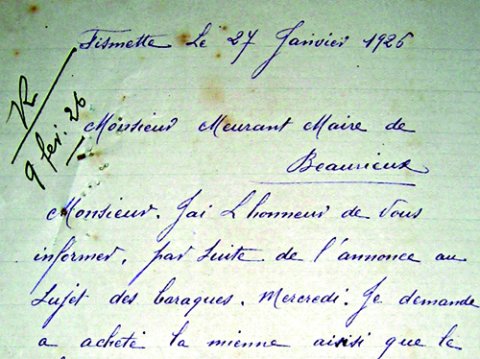 Fismette Le 27 Janvier 1926
R
9 fev. 26
Monsieur Meurant Maire de
Beaurieux
Monsieur. J'ai L honneur de Vous
informer, par suite de l'annonce au
Sujet des baraques. Mercredi. Je demande
a acheté la mienne aisisi que le